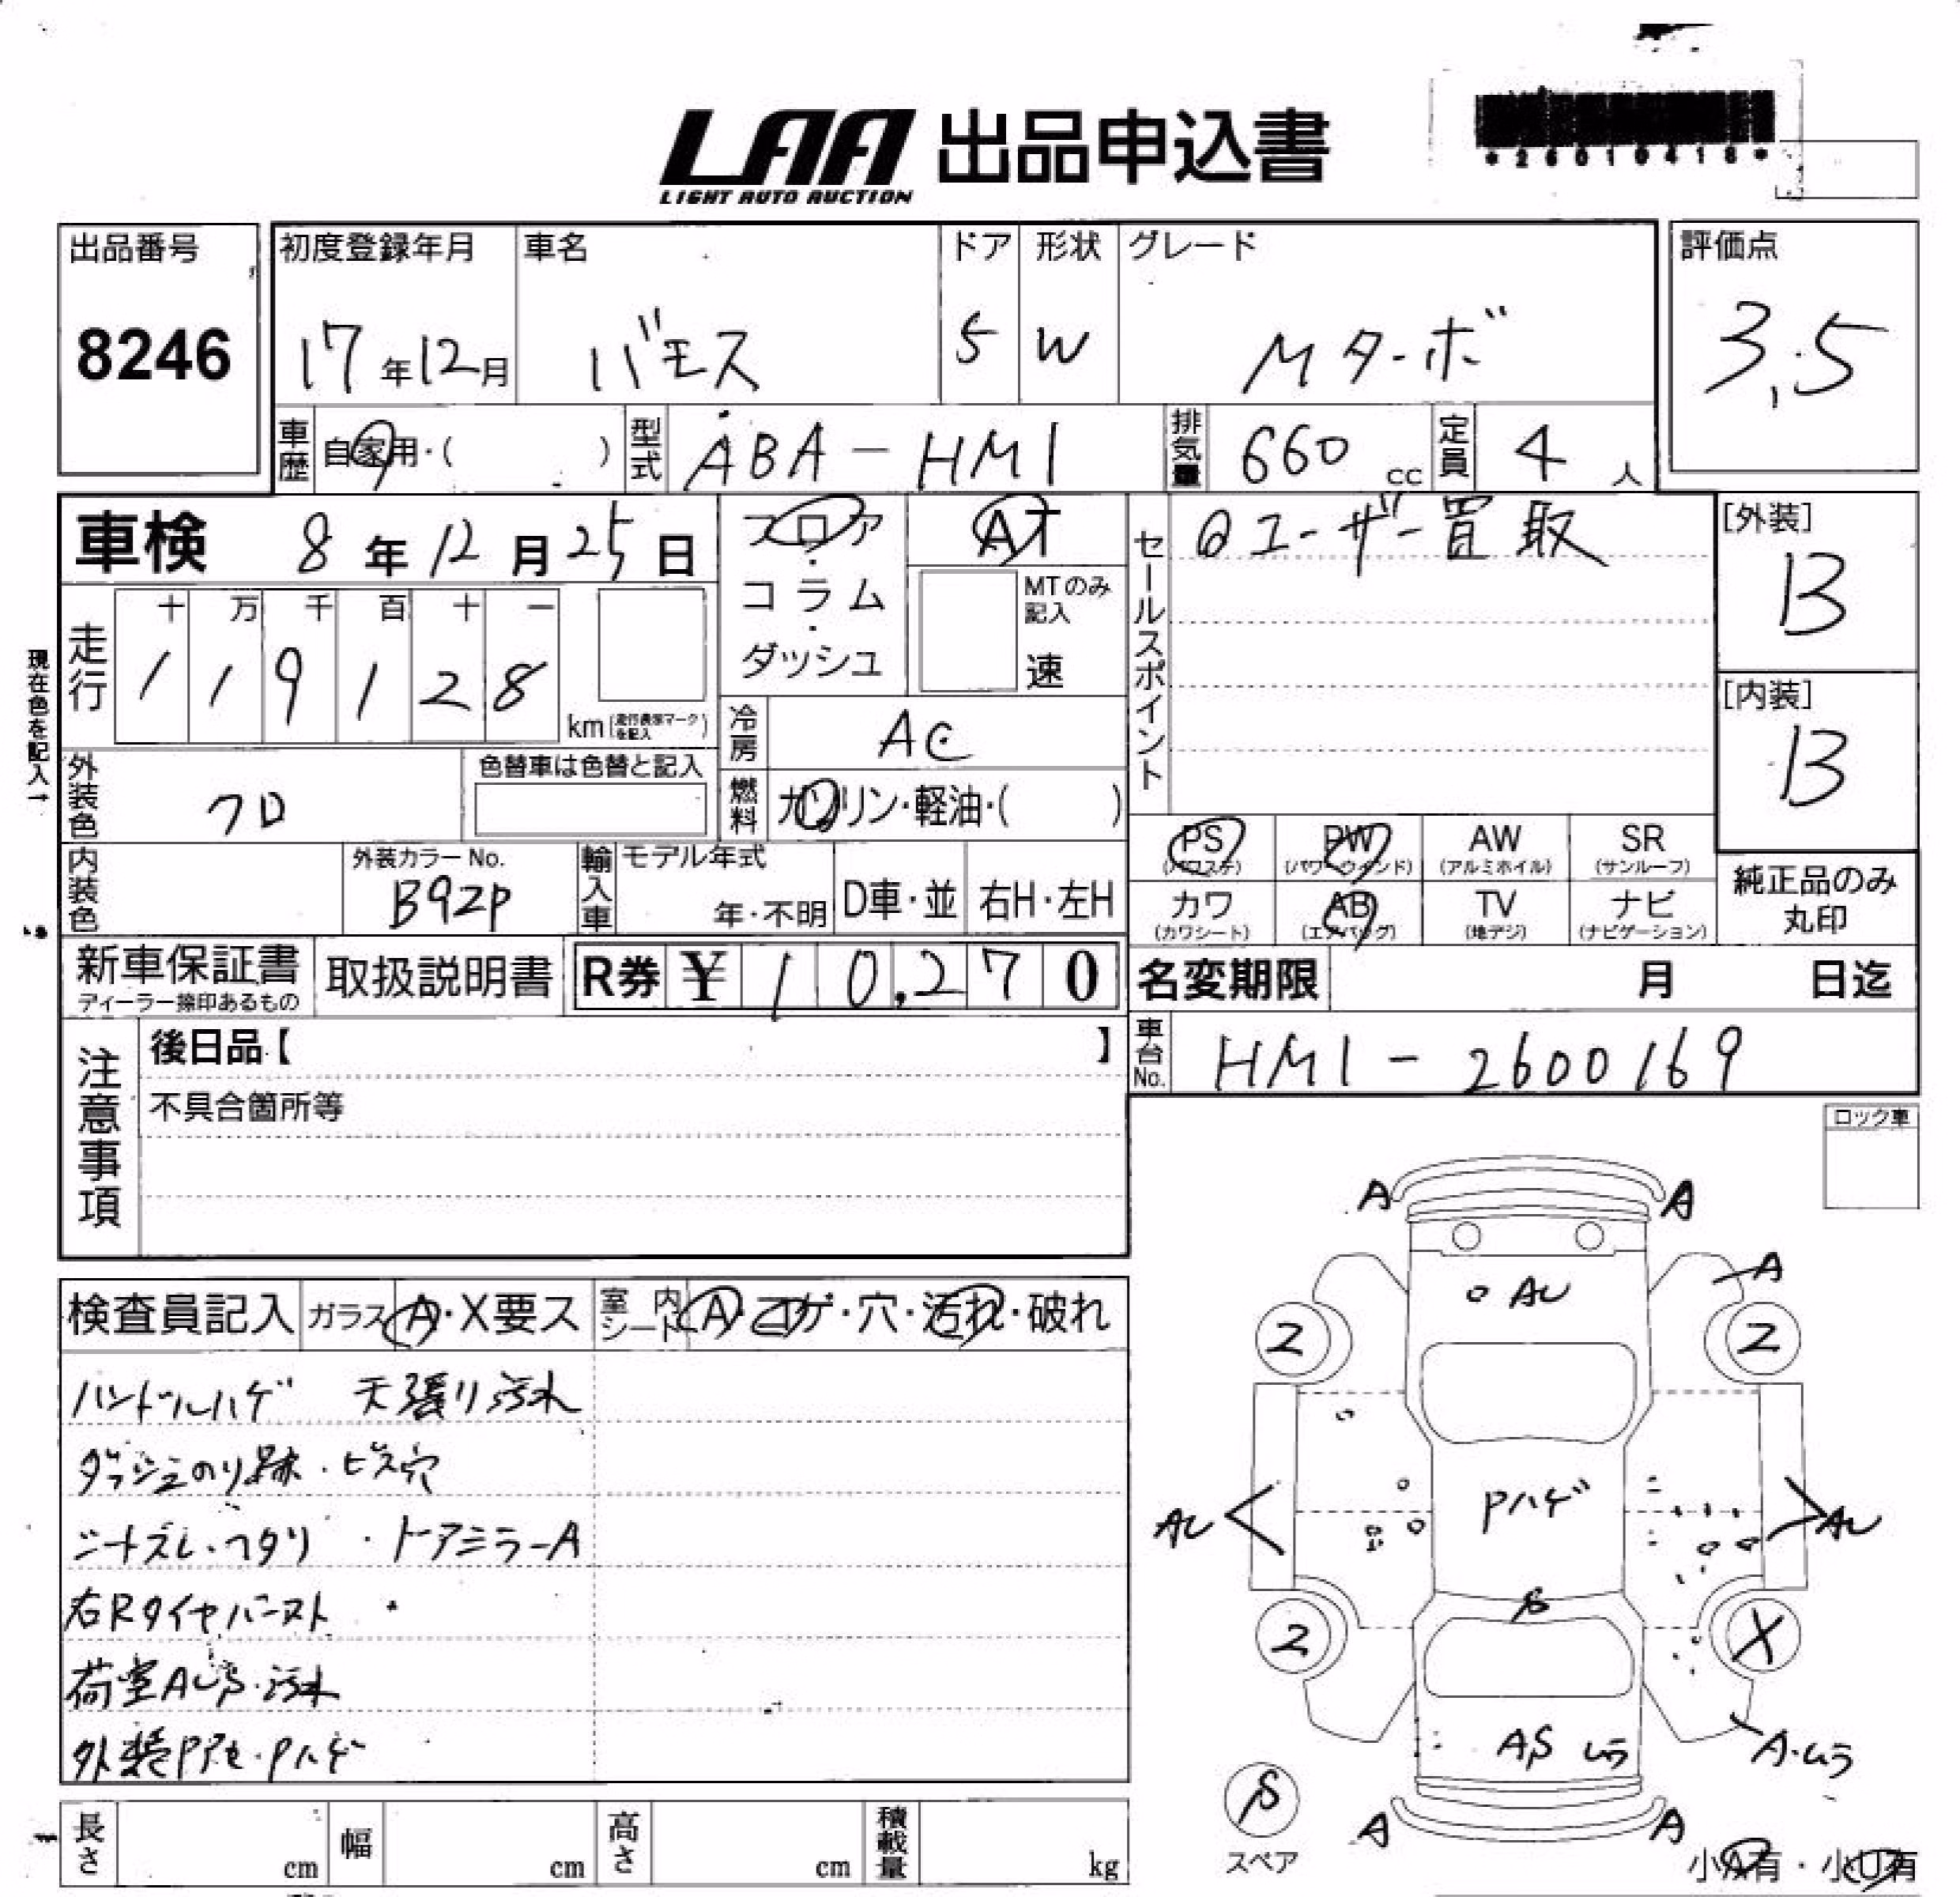 LAA 出品申込書
LIGHT AUTO AUCTION
*26010418*
出品番号
8246
初度登録年月
17年12月
車名
バモス
ドア
5
形状
W
グレード
Mターボ
評価点
3.5
車歴
自家用・( )
型式
ABA-HM1
排気量
660 cc
定員
4 人
車検 8年12月25日
フロア・コラム・ダッシュ
AT
MTのみ記入
速
セールスポイント
◎ユーザー買取
[外装]
B
[内装]
B
現在色を記入→
走行
十 万 千 百 十 一
1 1 9 1 2 8
km(走行表示マークを記入)
冷房
AC
外装色
クロ
色替車は色替と記入
燃料
ガソリン・軽油・( )
内装色
外装カラーNo.
B92P
輸入車
モデル年式
年・不明
D車・並
右H・左H
PS
(パワステ)
PW
(パワーウインド)
AW
(アルミホイル)
SR
(サンルーフ)
カワ
(カワシート)
AB
(エアバッグ)
TV
(地デジ)
ナビ
(ナビゲーション)
純正品のみ
丸印
新車保証書
ディーラー捺印あるもの
取扱説明書
R券 ¥ 10,270
名変期限 月 日迄
注意事項
後日品【 】
不具合箇所等
車台No.
HM1-2600169
ロック車
検査員記入
ガラス A・X要ス
室内シート A・コゲ・穴・汚れ・破れ
ハンドルハゲ 天張り汚れ
ダッシュのり跡・ビス穴
シートスレ・ヘタリ ・ドアミラーA
右Rタイヤバースト
荷室AUS・汚れ
外装PPセ・Pハゲ
A A
AU
A
2 2
Pハゲ
AU AU
S
2 X
AS ムラ
A・ムラ
S
スペア
A A
小A有・小U有
長さ cm
幅 cm
高さ cm
積載量 kg